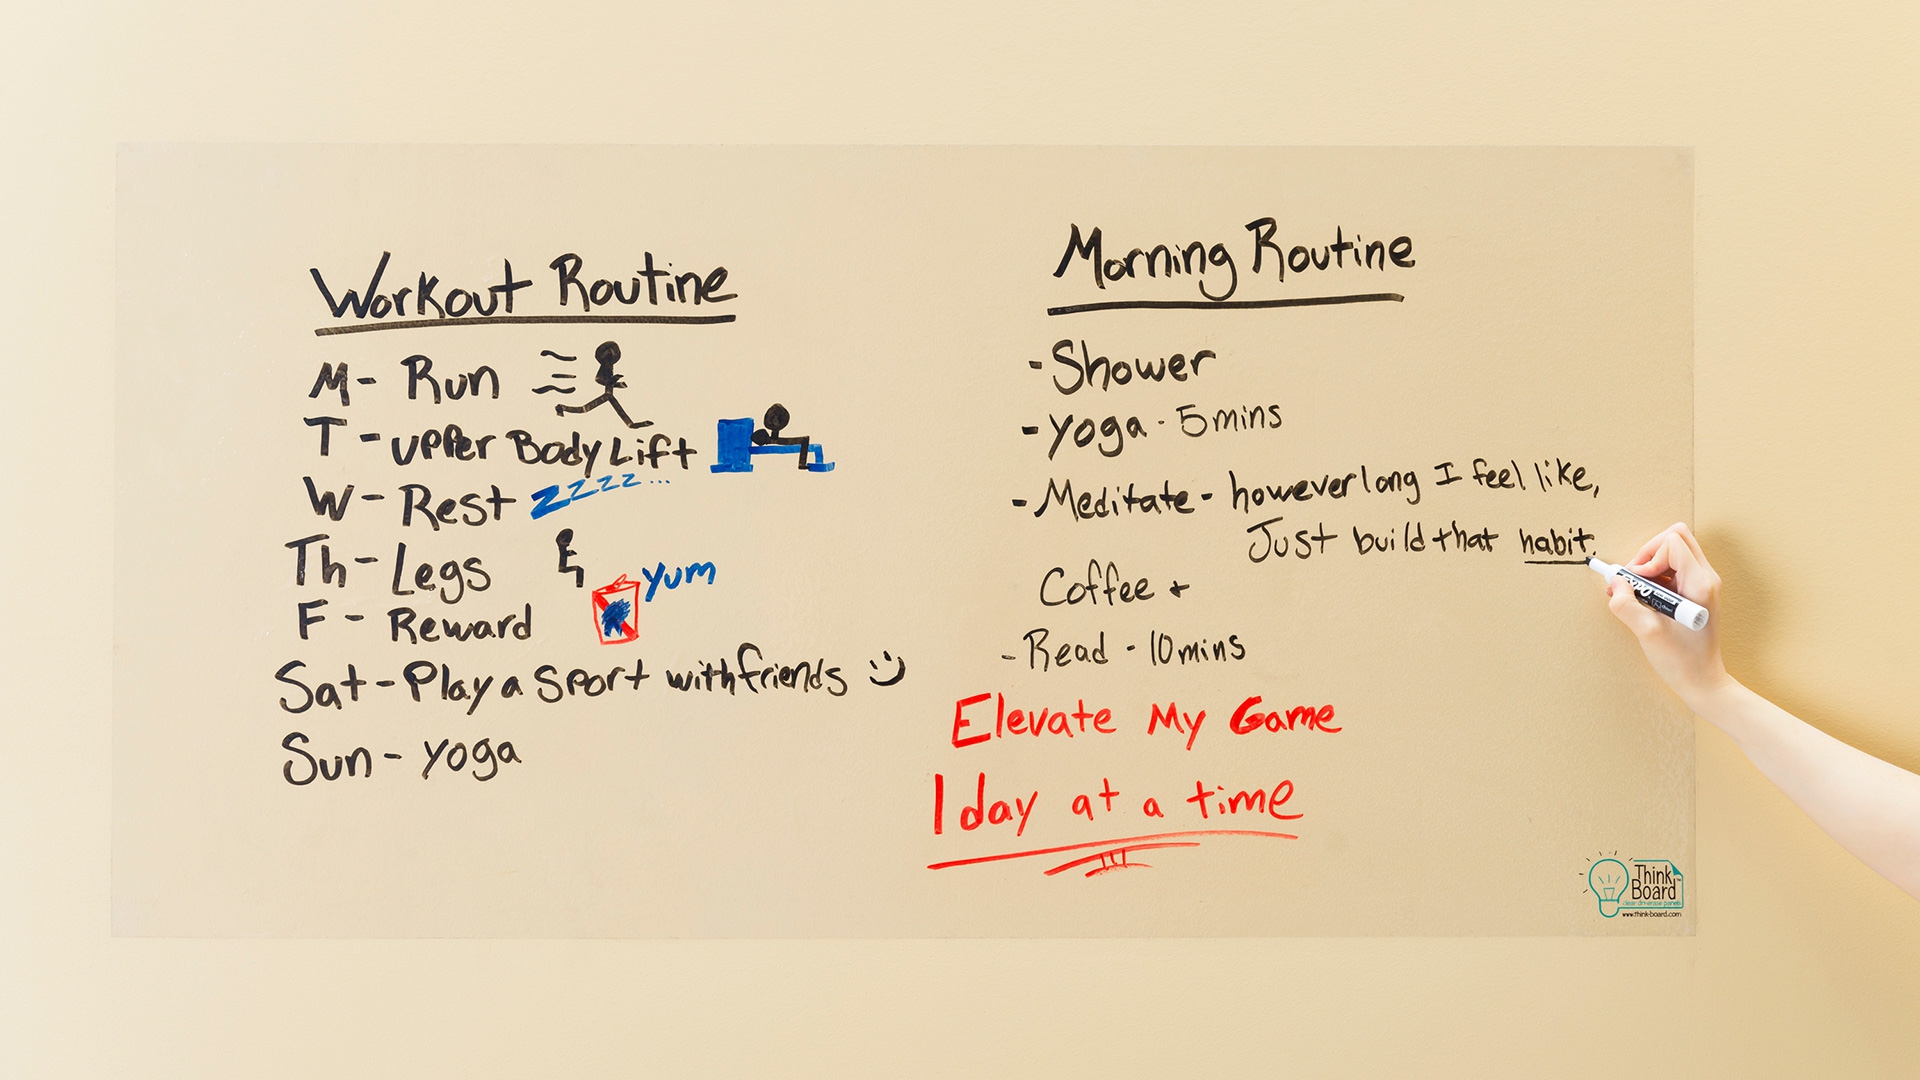 Workout Routine
M- Run
T - upper Body Lift
W- Rest zzzz...
Th- Legs
yum
F - Reward
Sat- Play a Sport with friends :)
Sun- yoga
Morning Routine
- Shower
- yoga - 5 mins
- Meditate - however long I feel like,
Just build that habit.
Coffee +
- Read - 10 mins
Elevate My Game
1 day at a time
Think
Board
clear dry-erase panels
www.think-board.com